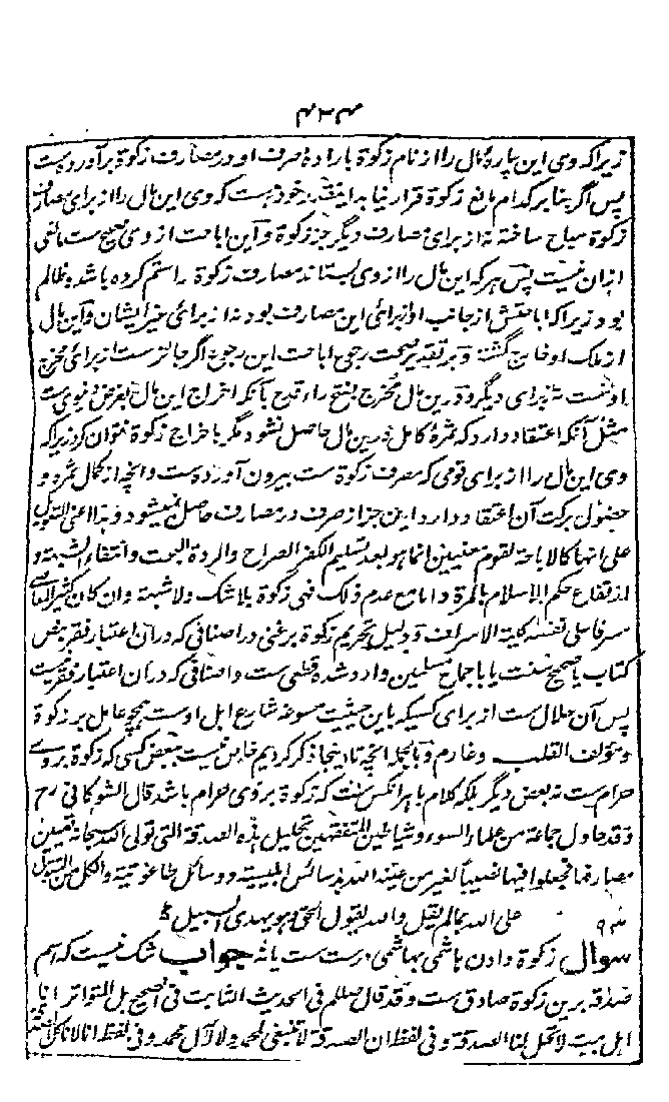 ۴۲۴
زیراکه وی این پارهٔ مال را از نام زکوة بارادهٔ صرف او در مصارف زکوة برآورده ست
پس اگر بنا بر کدام مانع زکوة قرار نیابد اینقدر خود هست که وی این مال را از برای مصارف
زکوة مباح ساخته نه از برای مصارف دیگر جز زکوة و این اباحت از وی صحیح ست مانعی
ازان نیست پس هرکه این مال را از وی بستاند مصارف زکوة را ستم کرده باشد و ظالم
بود زیراکه اباحتش از جانب او از برای این مصارف بود نه از برای غیر ایشان و این مال
از ملک او خارج گشته و بر تقدیر صحت رجوع اباحت این رجوع اگر جائز ست از برای مخرج
اوست نه برای دیگر و درین مال مخرج بفتح راء قدح بآنکه اخراج این مال بغرض دنیوی ست
مثل آنکه اعتقاد دارد که ثمرهٔ کامل درین مال حاصل نشود مگر باخراج زکوة نتوان کرد زیراکه
وی این مال را از برای قومی که مصرف زکوة ست بیرون آورده ست و آنچه از کمال ثمره و
حصول برکت آن اعتقاد دارد این جز از صرف در مصارف حاصل نمیشود و هذا اعنی القول
علی انها کالاباحة لقوم معینین انما هو بعد تسلیم الکفر الصراح والردة البحت وانتفاء الشبهة و
ارتفاع حکم الاسلام بالمرة واما مع عدم ذلک فهی زکوة بلا شک ولا شبهة وان کان کثیر المعاصی
مسرفا علی نفسه کلیة الاسراف و دلیل تحریم زکوة بر غنی در اصنافی که دران اعتبار فقر بنص
کتاب یا صحیح سنت یا باجماع مسلمین وارد شده قطعی ست و اصنافی که دران اعتبار فقر نیست
پس آن حلال ست از برای کسیکه باین حیثیت مسوغهٔ شارع اهل اوست همچو عامل بر زکوة
و مؤلف القلب و غارم و بالجمله آنچه تا اینجا ذکر کردیم خاص نیست ببعض کسی که زکوة بر وے
حرام ست نه بعض دیگر بلکه کلام با هر کس ست که زکوة بر وی حرام باشد قال الشوکانی رح
وقد حاول جماعة من علماء السوء وشیاطین المتفقهین تحلیل هذه الصدقة التی تولی الله سبحانه تعیین
مصارفها فجعلوا فیها نصیبا لغیر من عینه الله بدسائس ابلیسیة ووسائل طاغوتیة والکل من التقول
علی الله بما لم یقل والله یقول الحق وهو یهدی السبیل
سوال زکوة دادن هاشمی بهاشمی درست ست یا نه جواب شک نیست که اسم
صدقه برین زکوة صادق ست وقد قال صلعم فی الحدیث الثابت فی الصحیح بل المتواتر انا
اهل بیت لا تحل لنا الصدقة وفی لفظ ان الصدقة لا تنبغی لمحمد ولا لآل محمد وفی لفظ انا لا نأکل